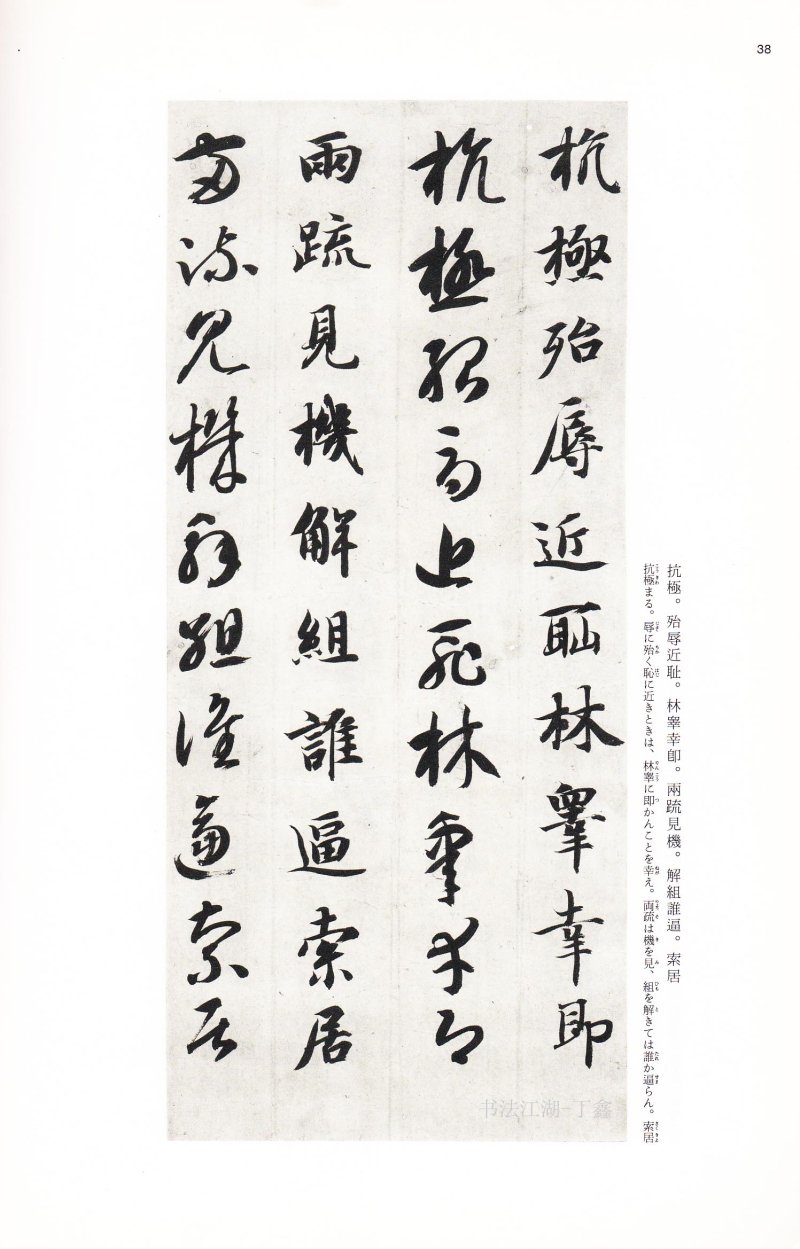 38
抗極。殆辱近耻。林睾幸卽。兩䟽見機。解組誰逼。索居
抗極まる。辱に殆く恥に近きときは、林睾に即かんことを幸え。両疏は機を見、組を解きては誰か逼らん。索居
杭極殆辱近耻林睾幸即
杭極殆辱近耻林睾幸即
兩䟽見機解組誰逼索居
兩疏見機解組誰逼索居
书法江湖-丁鑫